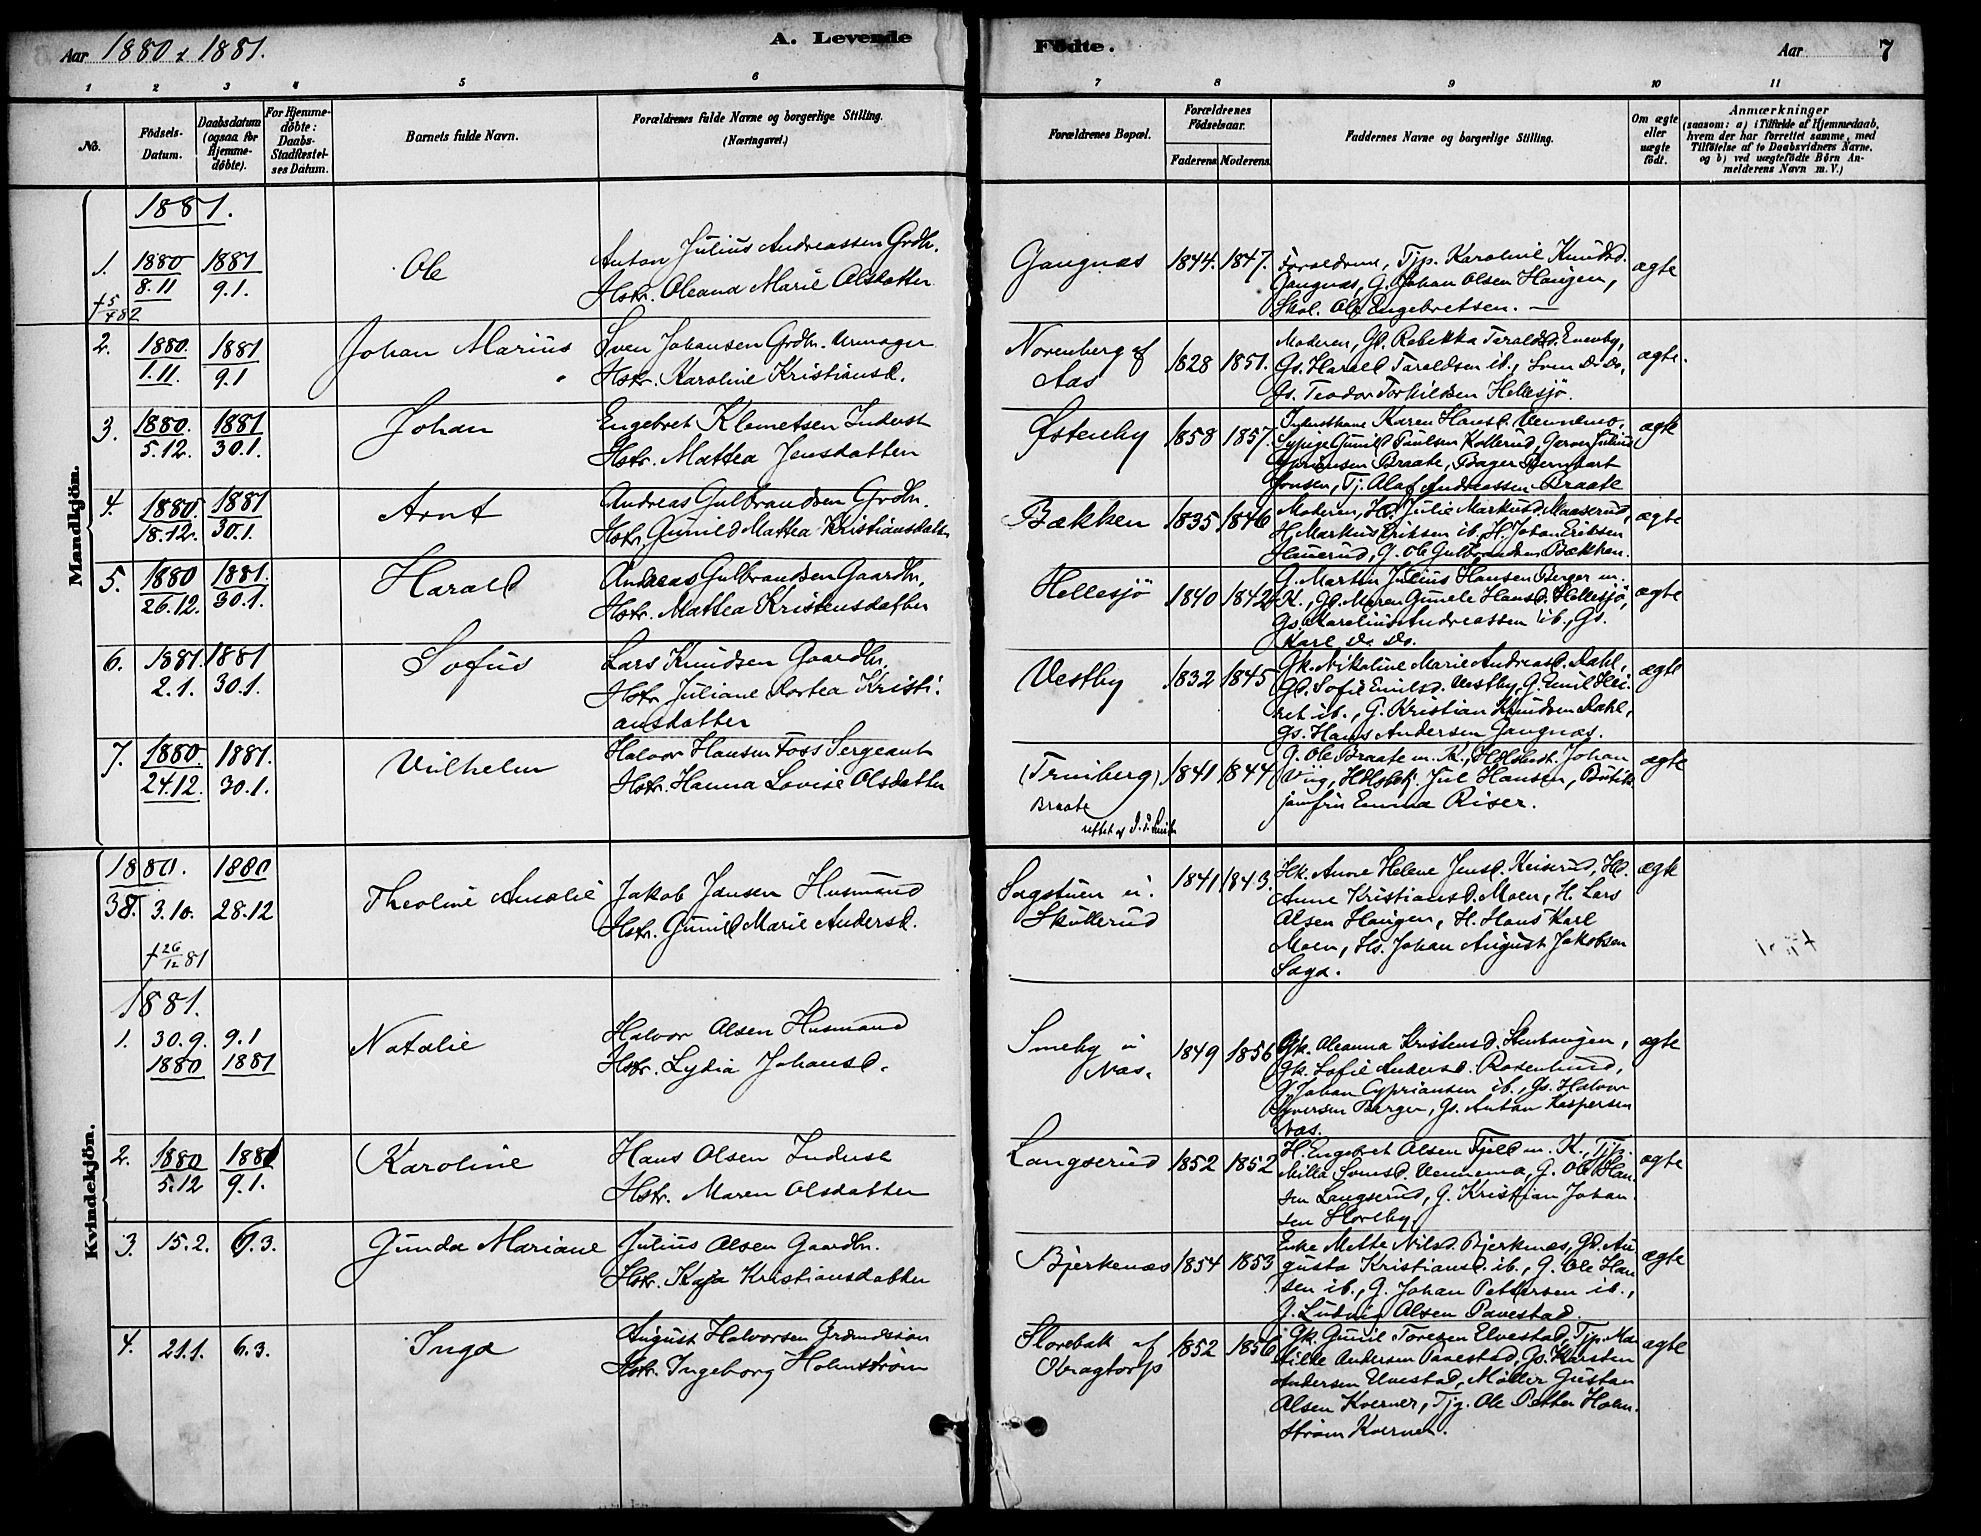 Aar 1880 & 1881.
A. Levende
Fødte.
Aar
7
1 2 3 4 5 6 7 8 9 10 11
No.
Fødsels-Datum.
Daabsdatum (ogsaa for Hjemme-døbte).
For Hjemme-døbte: Daabs-Stadfæstel-ses Datum.
Barnets fulde Navn.
Forældrenes fulde Navne og borgerlige Stilling. (Næringsvei.)
Forældrenes Bopæl.
Forældrenes Fødselsaar.
Faderens Moderens
Faddernes Navne og borgerlige Stilling.
Om ægte eller uægte født.
Anmærkninger
(saasom: a) i Tilfælde af Hjemmedaab,
hvem der har forrettet samme, med
Tilføielse af to Daabsvidners Navne,
og b) ved uægtefødte Børn An-
melderens Navn m. V.)
Mandkjön.
1881.
1. 1880 8.11 1881 9.1. Ole
†5/4 82
Anton Julius Andreassen Grdbr.
Hstr. Oleana Marie Olsdatter
Gangnæs 1844. 1847.
Forældrene, Tjp. Karoline Knudsd.
Gangnæs, G. Johan Olsen Haugen,
Skol. Olf Engebretsen. —
ægte
2. 1880. 1.11. 1881 9.1 Johan Marius
Sven Johansen Grdbr. Urmager
Hstr. Karoline Kristiansd.
Norenberg af Aas 1828 1851.
Moderen, Gp. Rebekka Taraldsd. Evenby,
Gs. Harald Taraldsen ib., Sven do do,
Gs. Teodor Torkildsen Hellesjö.
ægte.
3. 1880. 5.12. 1881 30.1. Johan
Engebret Klemetsen Inderst
Hstr. Mattea Jensdatter
Østenby 1858 1857
Inderstkone Karen Hansd. Vennemo,
Sypige Gunild Paulsen Kollerud, Garver Julius
Cypriansen Braate, Bager Bernhart
Jonsen, Tj. Olaf Andreassen Braate
ægte
4. 1880. 18.12. 1881 30.1. Arnt
Andreas Gulbrandsen Grdbr.
Hstr. Gunild Mattea Kristiansdatter
Bækken 1835 1846
Moderen, Hp. Julie Markusd. Maaserud,
H. Markus Eriksen ib., H. Johan Eriksen
Hauerud, G. Ole Gulbrandsen Bækken.
ægte
5. 1880 26.12. 1881. 30.1. Harald
Andreas Gulbrandsen Gaardbr.
Hstr. Mattea Kristensdatter
Hellesjö 1840 1842
G. Martin Julius Hansen Berger m.
K., Gp. Maren Gunele Hansd. Hellesjö,
Gs. Karolius Andreassen ib., Gs.
Karl do. do.
ægte
6. 1881. 2.1. 1881 30.1. Sofus
Lars Knudsen Gaardbr.
Hstr. Juliane Dortea Kristi-
ansdatter
Vestby 1832 1845
Gk. Nikoline Marie Andreasd. Dahl,
Gp. Sofie Emilsd. Vestby, G. Emil
ib., G. Kristian Knudsen Dahl,
Gs. Hans Andersen Gangnæs.
ægte
7. 1880. 24.12. 1881. 30.1. Vilhelm
Halvor Hansen Foss Sergeant
Hstr. Hanna Lovise Olsdatter
(Truiberg) Braate 1841 1844
rettet af
G. Ole Braate m. K., Johan
Viig, Jul Hansen,
jomfru Emma Riser.
ægte
Kvindekjön.
1880. 1880
38. 3.10. 28.12 Theoline Amalie
†26/12 81
Jakob Jansen Husmand
Hstr. Gunild Marie Andersd.
Sagstuen u. Skullerud 1841 1843.
Hk. Anne Helene Jensd. Keiserud, Hp.
Anne Kristiansd. Moen, H. Lars
Olsen Haugen, H. Hans Karl
Moen, Hs. Johan August Jakobsen
Saga.
ægte
1881.
1. 30.9. 1880 9.1 1881 Natalie
Halvor Olsen Husmand
Hstr. Lydia Johansd.
Smeby u Næs. 1849 1856
Gk. Oleanna Kristensd. Stenhaugen,
Gk. Sofie Andersd. Rosenlund,
G. Johan Cypriansen ib., Gs. Halvor
Syversen Berger, Gs. Anton Kaspersen
Næs.
ægte
2. 1880 5.12 1881 9.1. Karoline
Hans Olsen Inderst
Hstr. Maren Olsdatter
Langserud 1852 1852
H. Engebret Olsen Fjeld m. K., Tjp.
Milla Svensd. Vennemo, G. Ole Han-
sen Langserud, G. Kristian Johan-
sen Floreby
ægte
3. 15.2. 6.3. Gunda Mariane
Julius Olsen Gaardbr.
Hstr. Kaja Kristiansdatter
Bjerkenæs 1854 1853
Enke Mette Nilsd. Bjerkenæs, Gp. Au-
gusta Kristiansd. ib., G. Ole Han-
sen ib., G. Johan Pettersen ib.,
G. Ludvig Olsen Pavestad
ægte
4. 21.1. 6.3. Inga
August Halvorsen
Hstr. Ingeborg Holmstrøm
Slorebak af Obragtorp 1852 1856
Gk. Gunil Toresen Elvestad, Tjp. Ma-
tilde Andersen Pavestad, Gs. Karsten
Andersen Elvestad, Møller Gustan
Olsen Kverner, Tjg. Ole Petter Holm-
strøm Kverner.
ægte